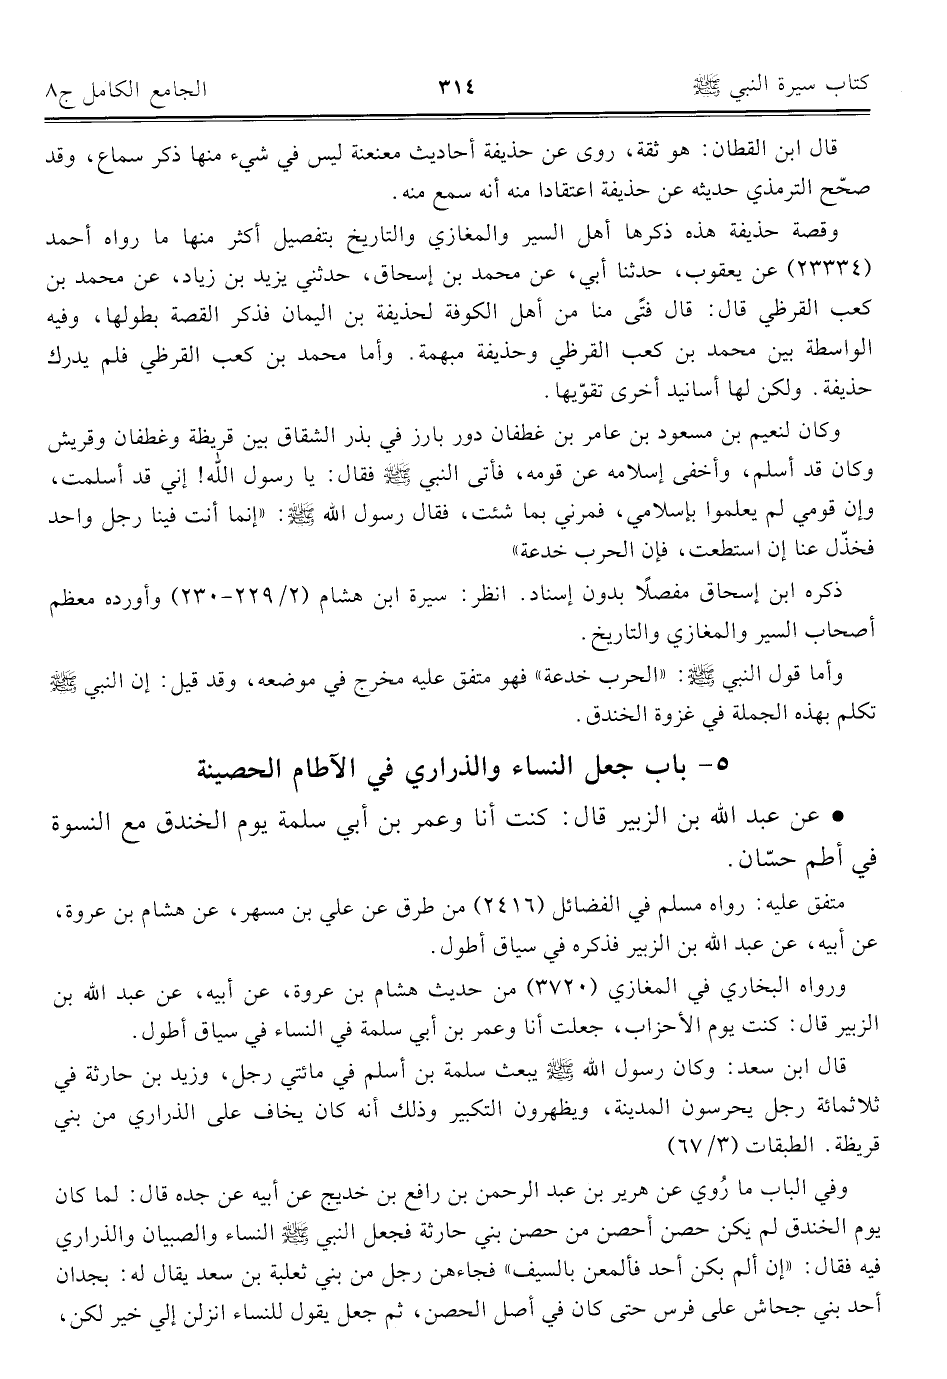 كتاب سيرة النبي ﷺ ٣١٤ الجامع الكامل ج٨
قال ابن القطان: هو ثقة، روى عن حذيفة أحاديث معنعنة ليس في شيء منها ذكر سماع، وقد
صحّح الترمذي حديثه عن حذيفة اعتقادا منه أنه سمع منه.
وقصة حذيفة هذه ذكرها أهل السير والمغازي والتاريخ بتفصيل أكثر منها ما رواه أحمد
(٢٣٣٣٤) عن يعقوب، حدثنا أبي، عن محمد بن إسحاق، حدثني يزيد بن زياد، عن محمد بن
كعب القرظي قال: قال فتًى منا من أهل الكوفة لحذيفة بن اليمان فذكر القصة بطولها، وفيه
الواسطة بين محمد بن كعب القرظي وحذيفة مبهمة. وأما محمد بن كعب القرظي فلم يدرك
حذيفة. ولكن لها أسانيد أخرى تقوّيها.
وكان لنعيم بن مسعود بن عامر بن غطفان دور بارز في بذر الشقاق بين قريظة وغطفان وقريش
وكان قد أسلم، وأخفى إسلامه عن قومه، فأتى النبي ﷺ فقال: يا رسول الله! إني قد أسلمت،
وإن قومي لم يعلموا بإسلامي، فمرني بما شئت، فقال رسول الله ﷺ: «إنما أنت فينا رجل واحد
فخذّل عنا إن استطعت، فإن الحرب خدعة»
ذكره ابن إسحاق مفصلًا بدون إسناد. انظر: سيرة ابن هشام (٢/ ٢٢٩-٢٣٠) وأورده معظم
أصحاب السير والمغازي والتاريخ.
وأما قول النبي ﷺ: «الحرب خدعة» فهو متفق عليه مخرج في موضعه، وقد قيل: إن النبي ﷺ
تكلم بهذه الجملة في غزوة الخندق.
٥- باب جعل النساء والذراري في الآطام الحصينة
● عن عبد الله بن الزبير قال: كنت أنا وعمر بن أبي سلمة يوم الخندق مع النسوة
في أطم حسّان.
متفق عليه: رواه مسلم في الفضائل (٢٤١٦) من طرق عن علي بن مسهر، عن هشام بن عروة،
عن أبيه، عن عبد الله بن الزبير فذكره في سياق أطول.
ورواه البخاري في المغازي (٣٧٢٠) من حديث هشام بن عروة، عن أبيه، عن عبد الله بن
الزبير قال: كنت يوم الأحزاب، جعلت أنا وعمر بن أبي سلمة في النساء في سياق أطول.
قال ابن سعد: وكان رسول الله ﷺ يبعث سلمة بن أسلم في مائتي رجل، وزيد بن حارثة في
ثلاثمائة رجل يحرسون المدينة، ويظهرون التكبير وذلك أنه كان يخاف على الذراري من بني
قريظة. الطبقات (٣/ ٦٧)
وفي الباب ما رُوي عن هرير بن عبد الرحمن بن رافع بن خديج عن أبيه عن جده قال: لما كان
يوم الخندق لم يكن حصن أحصن من حصن بني حارثة فجعل النبي ﷺ النساء والصبيان والذراري
فيه فقال: «إن ألم بكن أحد فألمعن بالسيف» فجاءهن رجل من بني ثعلبة بن سعد يقال له: بجدان
أحد بني جحاش على فرس حتى كان في أصل الحصن، ثم جعل يقول للنساء انزلن إلي خير لكن،